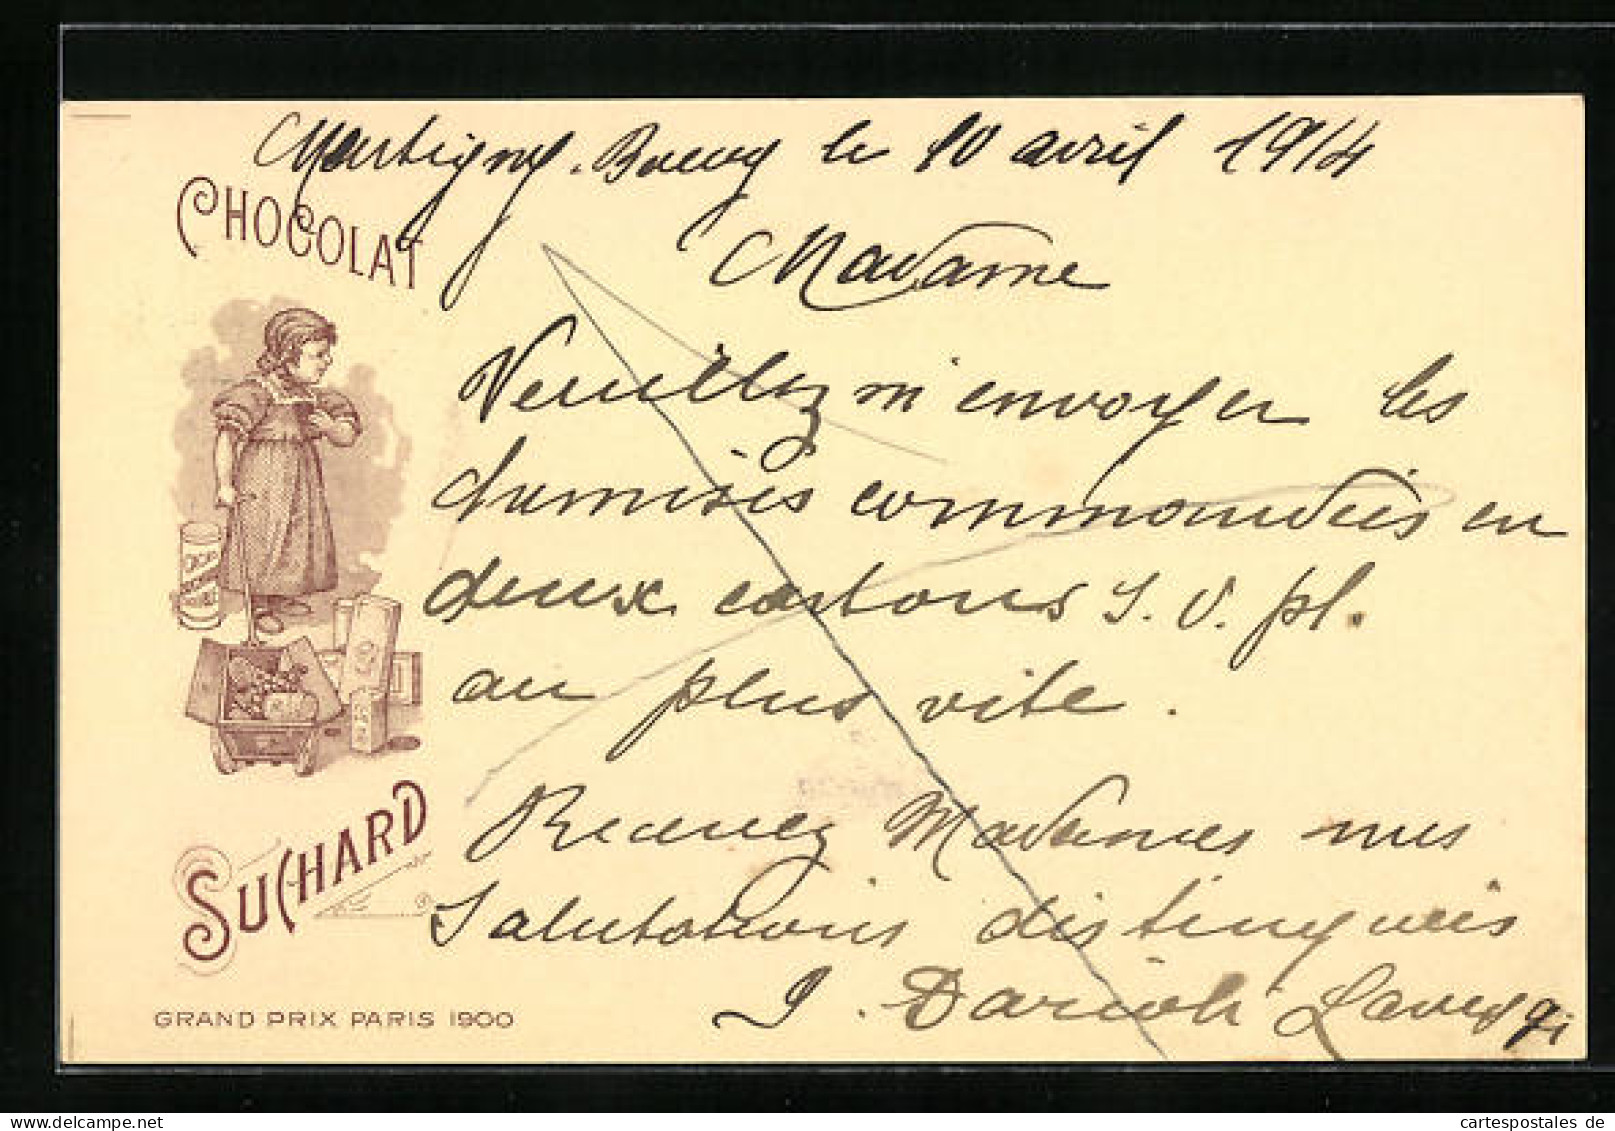 Martigny-Bourg le 10 avril 1914
CHOCOLAT
Madame
Veuillez m'envoyer les
chemises commandées en
deux cartons S. V. pl.
au plus vite.
Recevez Mesdames mes
Salutations distinguées
J. Darioli
SUCHARD
GRAND PRIX PARIS 1900
cartespostales de